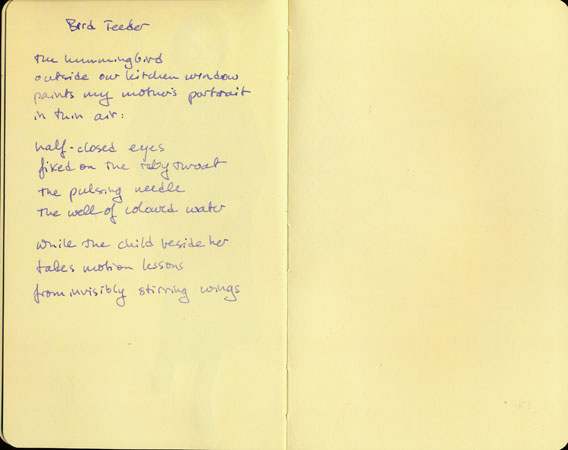 Bird Feeder
The hummingbird
outside our kitchen window
paints my mother's portrait
in thin air:
half-closed eyes
fixed on the ruby throat
the pulsing needle
the well of coloured water
while the child beside her
takes motion lessons
from invisibly stirring wings